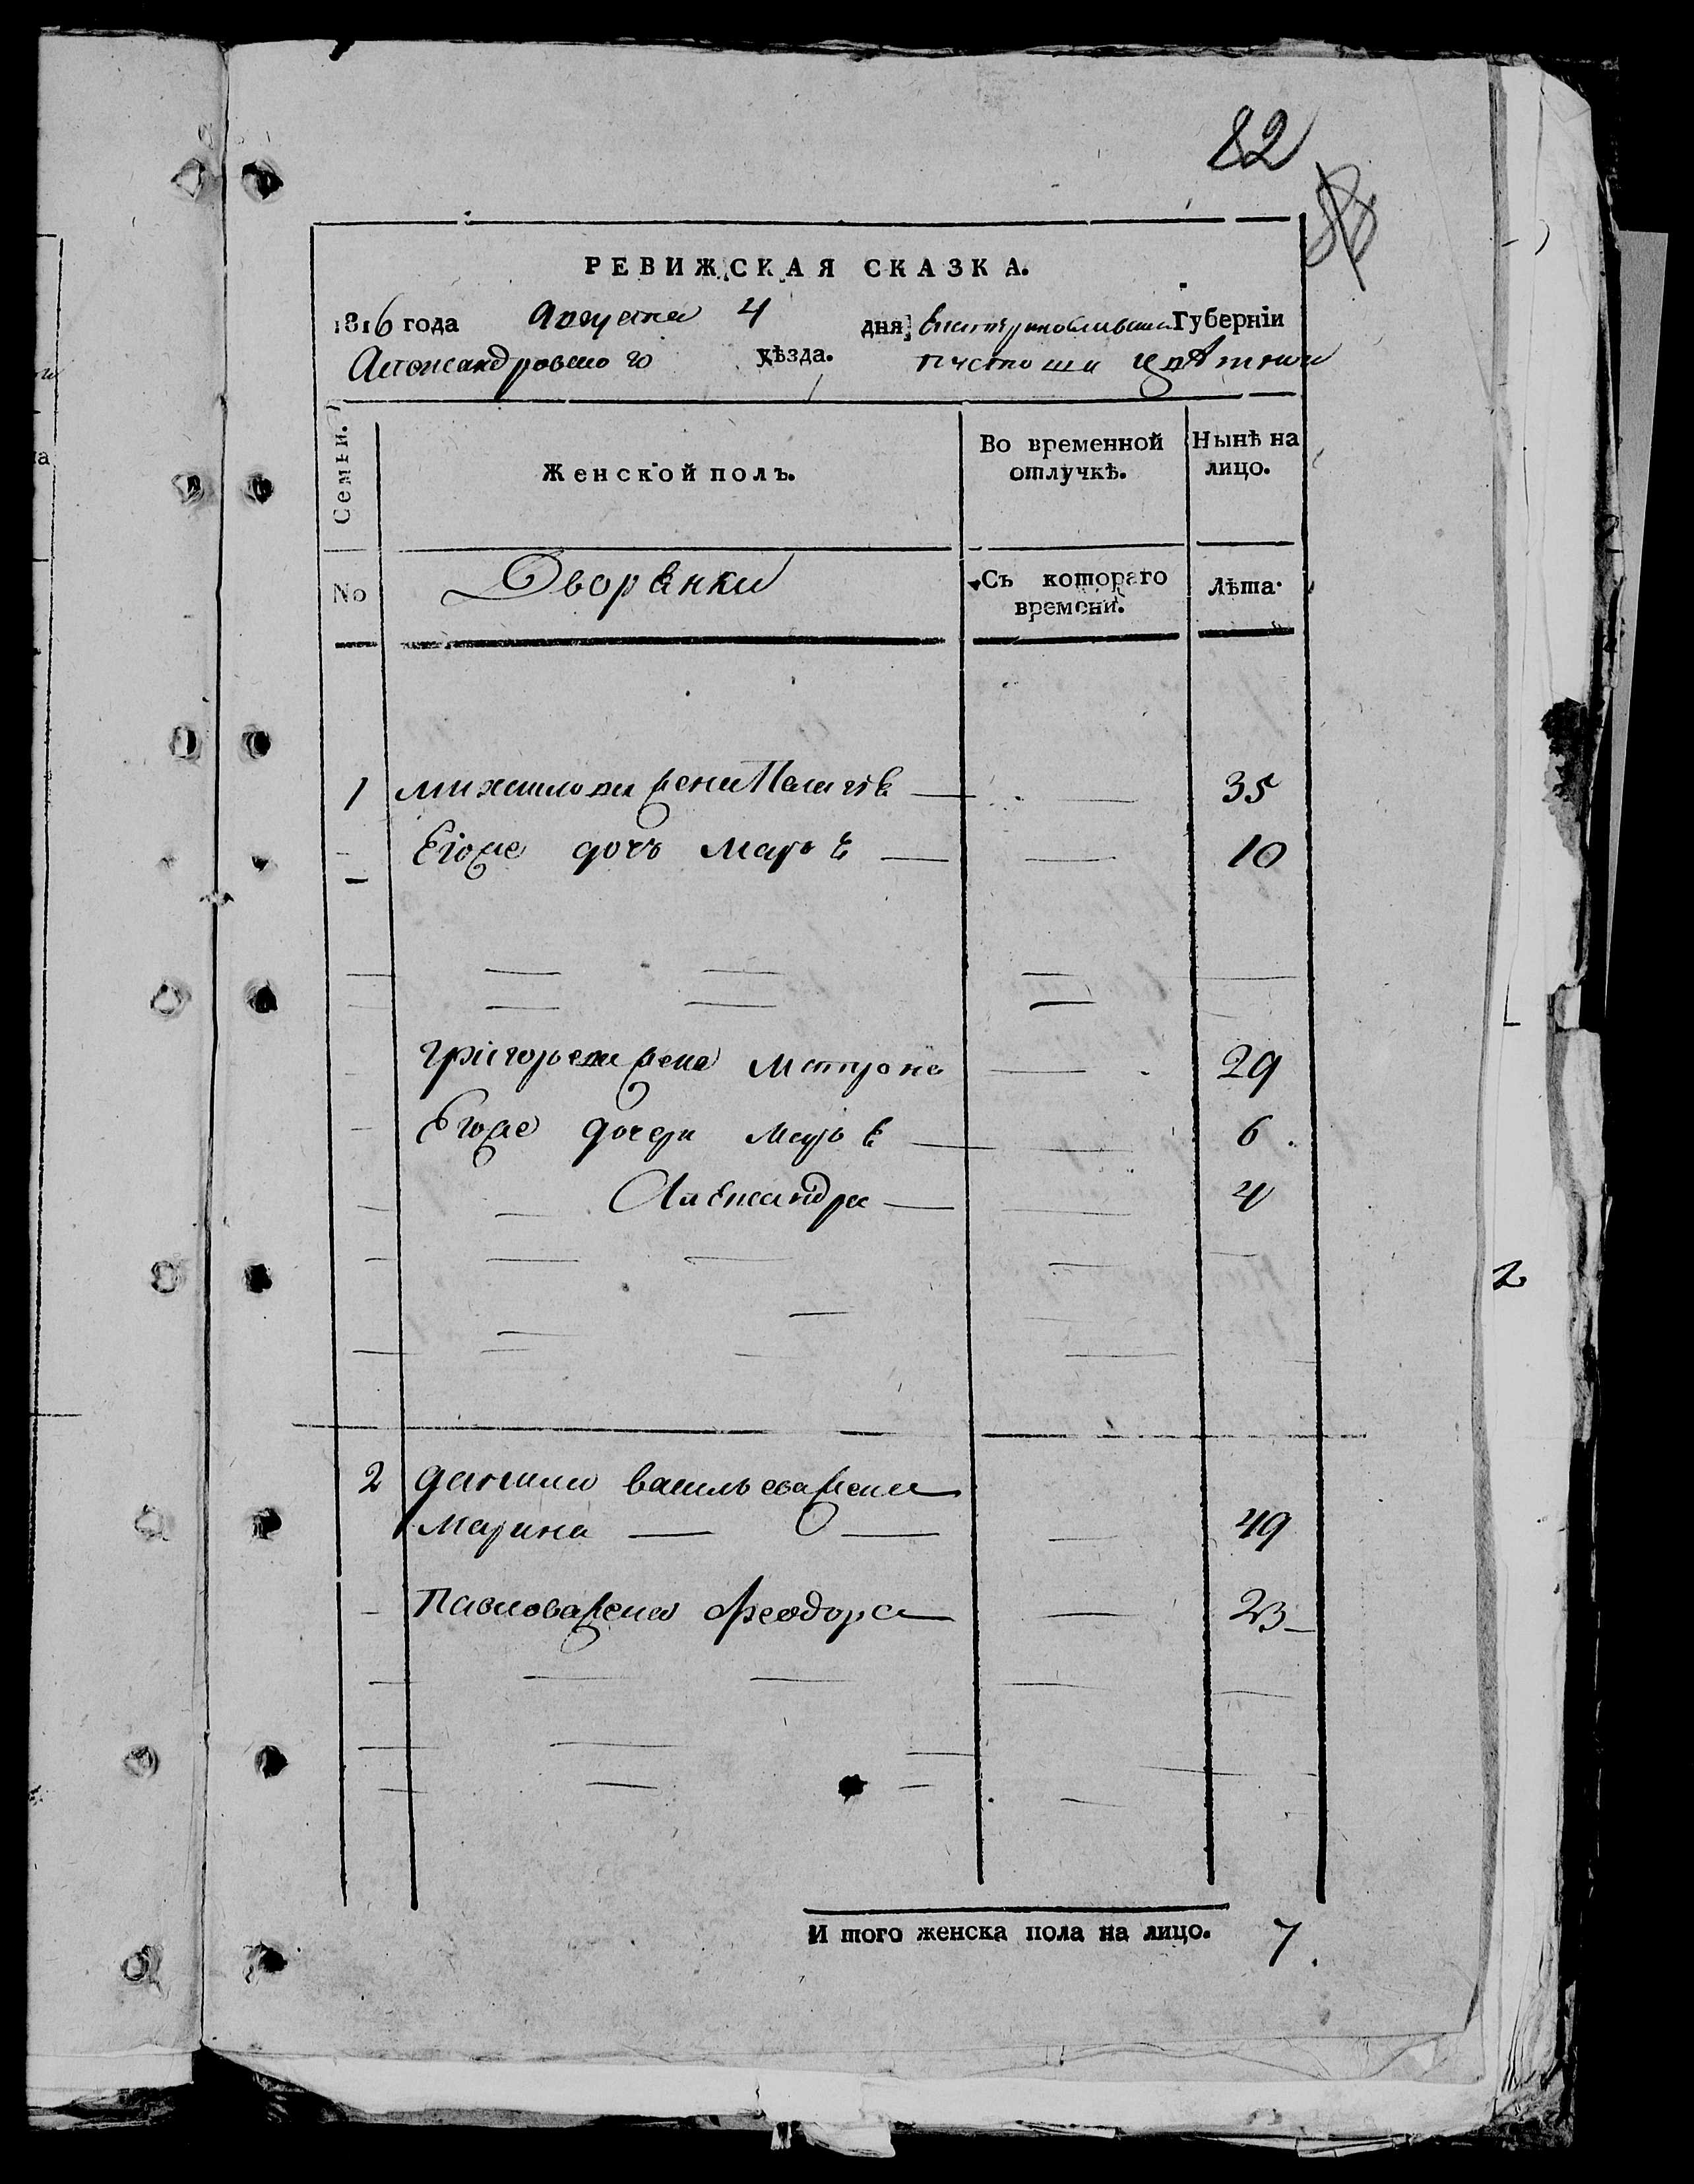 82
РЕВИЖСКАЯ СКАЗКА.
1816 года Августа 4 дня, Екатеринославской Губерніи
Александровского уѣзда. пустоши Цвѣтной
Семьи. Женской полъ. Во временной отлучкѣ. Нынѣ на лицо.
No Дворянки Съ котораго времени. Лѣта.
1 Михайлова жена Пелагея 35
Егоже дочь Марья 10
Григорьева жена Матрона 29
Егоже дочери Марья 6
Александра 4
2 Данила Васильева жена
Марина 49
Павлова жена Феодора 23
И того женска пола на лицо. 7.
2